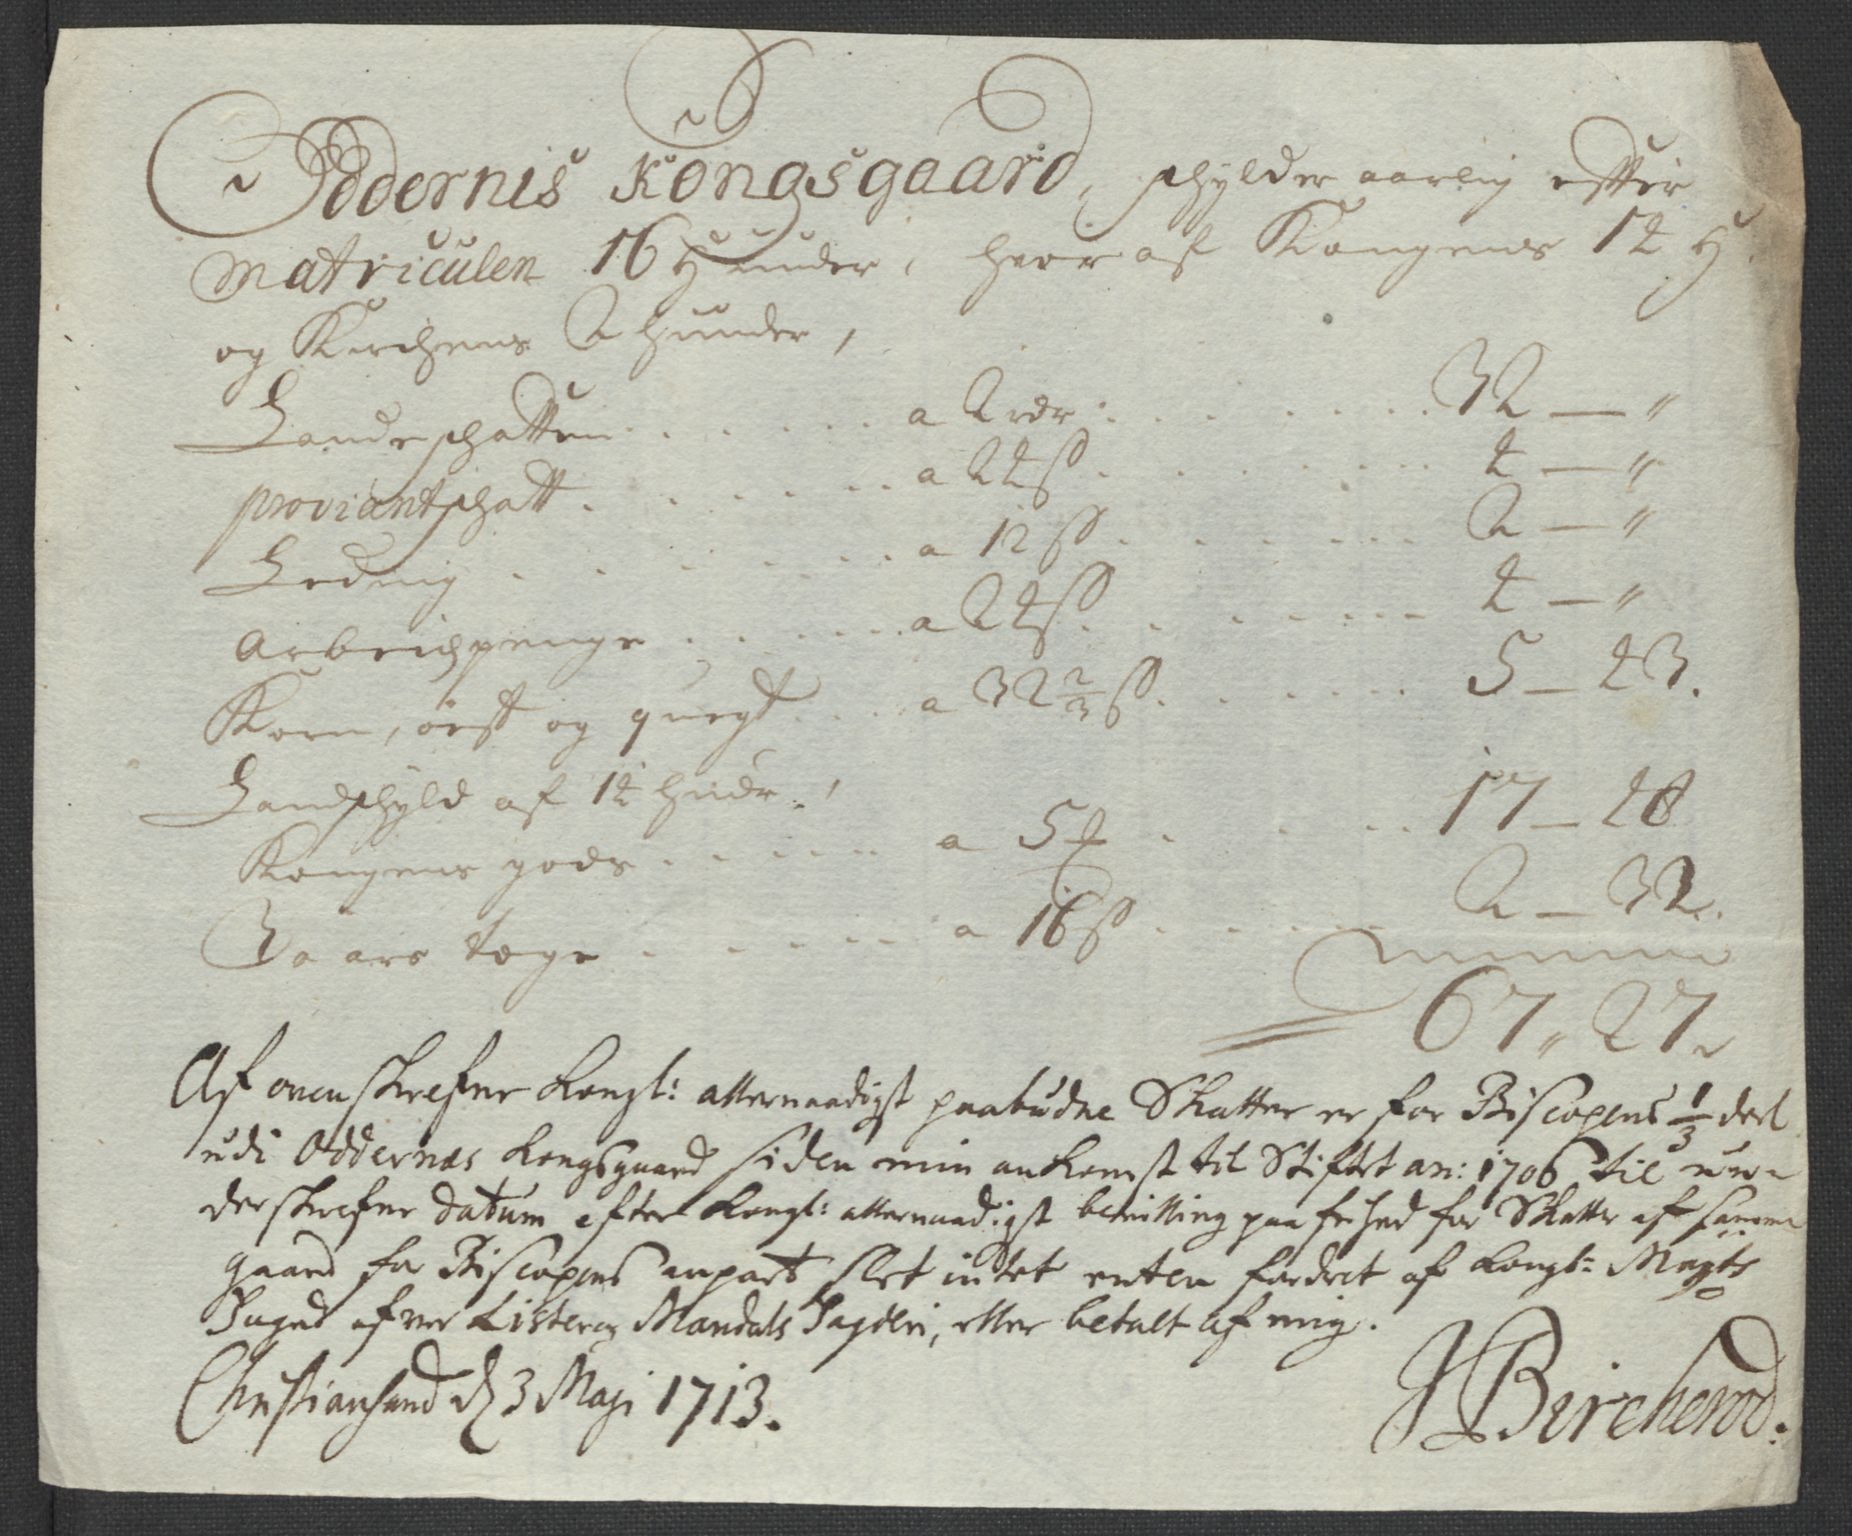 Oddernis Kongsgaard, schylder aarlig efter
Matriculen 16 Huuder, hvor af Kongens 14 H.
og Kirchens 2 huuder,
Landschatten . . . a 2 rdr . . . 32 — "
proviantschatt . . . a 24 ß . . . 4 — "
Leding . . . a 12 ß . . . 2 — "
Arbeidspenge . . . a 24 ß . . . 4 — "
Korn, oест og quegt . . . a 32 2/3 ß . . . 5 — 43.
Landschyld af 14 huder,
Kongens gods . . . a 5 . . . 17 — 48
Foars tøge . . . a 16 ß . . . 2 — 32.
67 " 27
Af ovenskrefne Kongl: allernaadigst paabudne Skatter er for Biscopens 1/3 deel
udi Oddernæs Kongsgaard siden min ankomst til Stiftet an: 1706 til un-
derskrefne datum efter Kongl: allernaadigst bevilling paa frihed for Skatter af samme
gaard for Biscopens anpart slet intet enten fordret af Kongl: Mayts
Foged ofver Lister og Mandals Fogderi, eller betalt af mig.
Christiansand d. 3 Maji 1713.
J Bircherod.